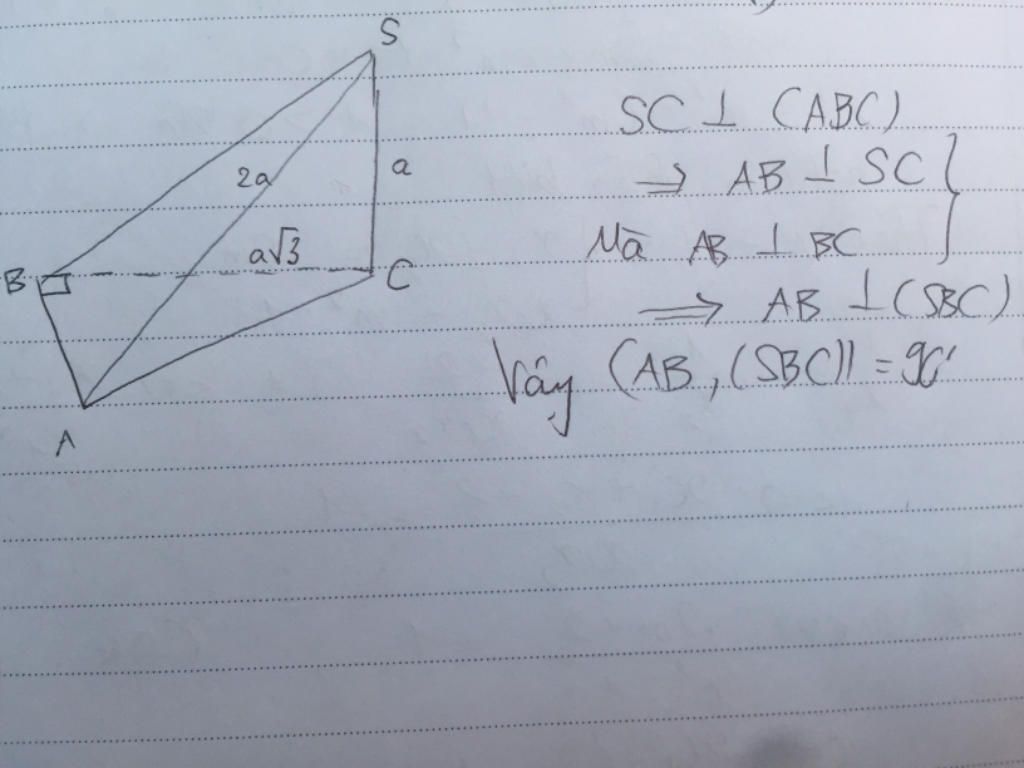 S
2a
a
a√3
B
C
A
SC ⊥ (ABC)
⇒ AB ⊥ SC }
Mà AB ⊥ BC
⟹ AB ⊥ (SBC)
Vậy (AB, (SBC)) = 90°